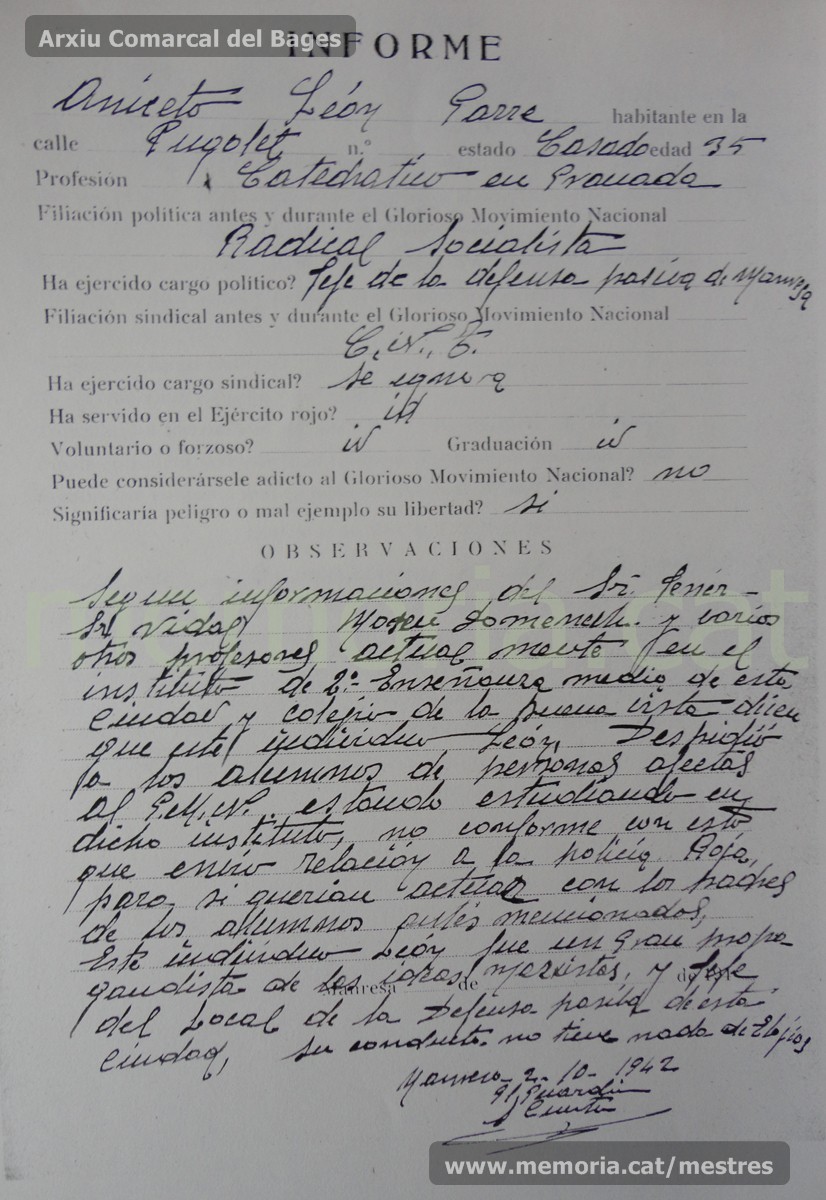 Arxiu Comarcal del Bages
INFORME
Aniceto León Garre habitante en la
calle Pugolet n.º estado Casado edad 35
Profesión Catedratico en Granada
Filiación política antes y durante el Glorioso Movimiento Nacional
Radical Socialista
Ha ejercido cargo político? Jefe de la defensa pasiva de Manresa
Filiación sindical antes y durante el Glorioso Movimiento Nacional
C. N. T.
Ha ejercido cargo sindical? se ignora
Ha servido en el Ejército rojo? id
Voluntario o forzoso? id Graduación id
Puede considerársele adicto al Glorioso Movimiento Nacional? no
Significaría peligro o mal ejemplo su libertad? si
OBSERVACIONES
Segun informaciones del Sr. Ferrer-
Sr Vidal Mosen Domenech. y varios
otros profesores actual mente en el
instituto de 2ª Enseñanza media de esta
Ciudad y colegio de la buena vista dicen
que este individuo León, Despidió
a los alumnos de personas afectas
al G.M.N. estando estudiando en
dicho instituto, no conforme con esto
que envio relación a la policia Roja,
para si querian actuar con los padres
de los alumnos antes mencionados,
Este individuo León fue un gran propa
gandista de las ideas marxistas, y Jefe
Manresa de de
del Local de la Defensa pasiva de esta
Ciudad, su conducta no tiene nada de Elojios
Manresa 2-10-1942
El Guardia
www.memoria.cat/mestres